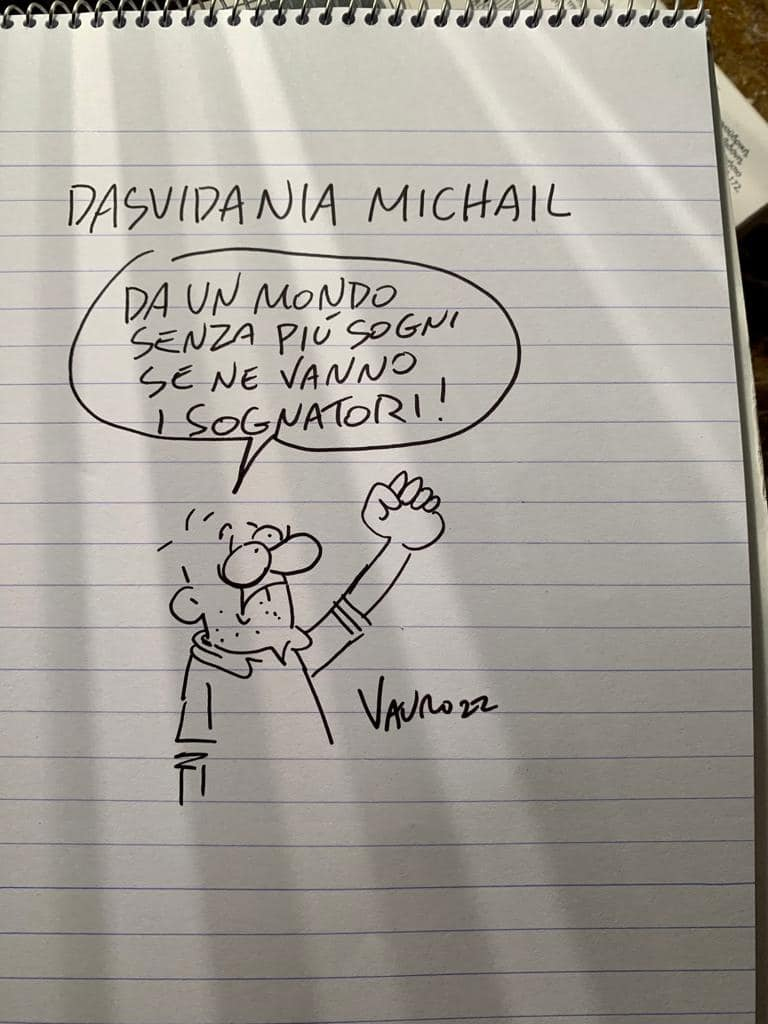 DASVIDANIA MICHAIL
DA UN MONDO
SENZA PIÚ SOGNI
SE NE VANNO
I SOGNATORI!
VAURO 22